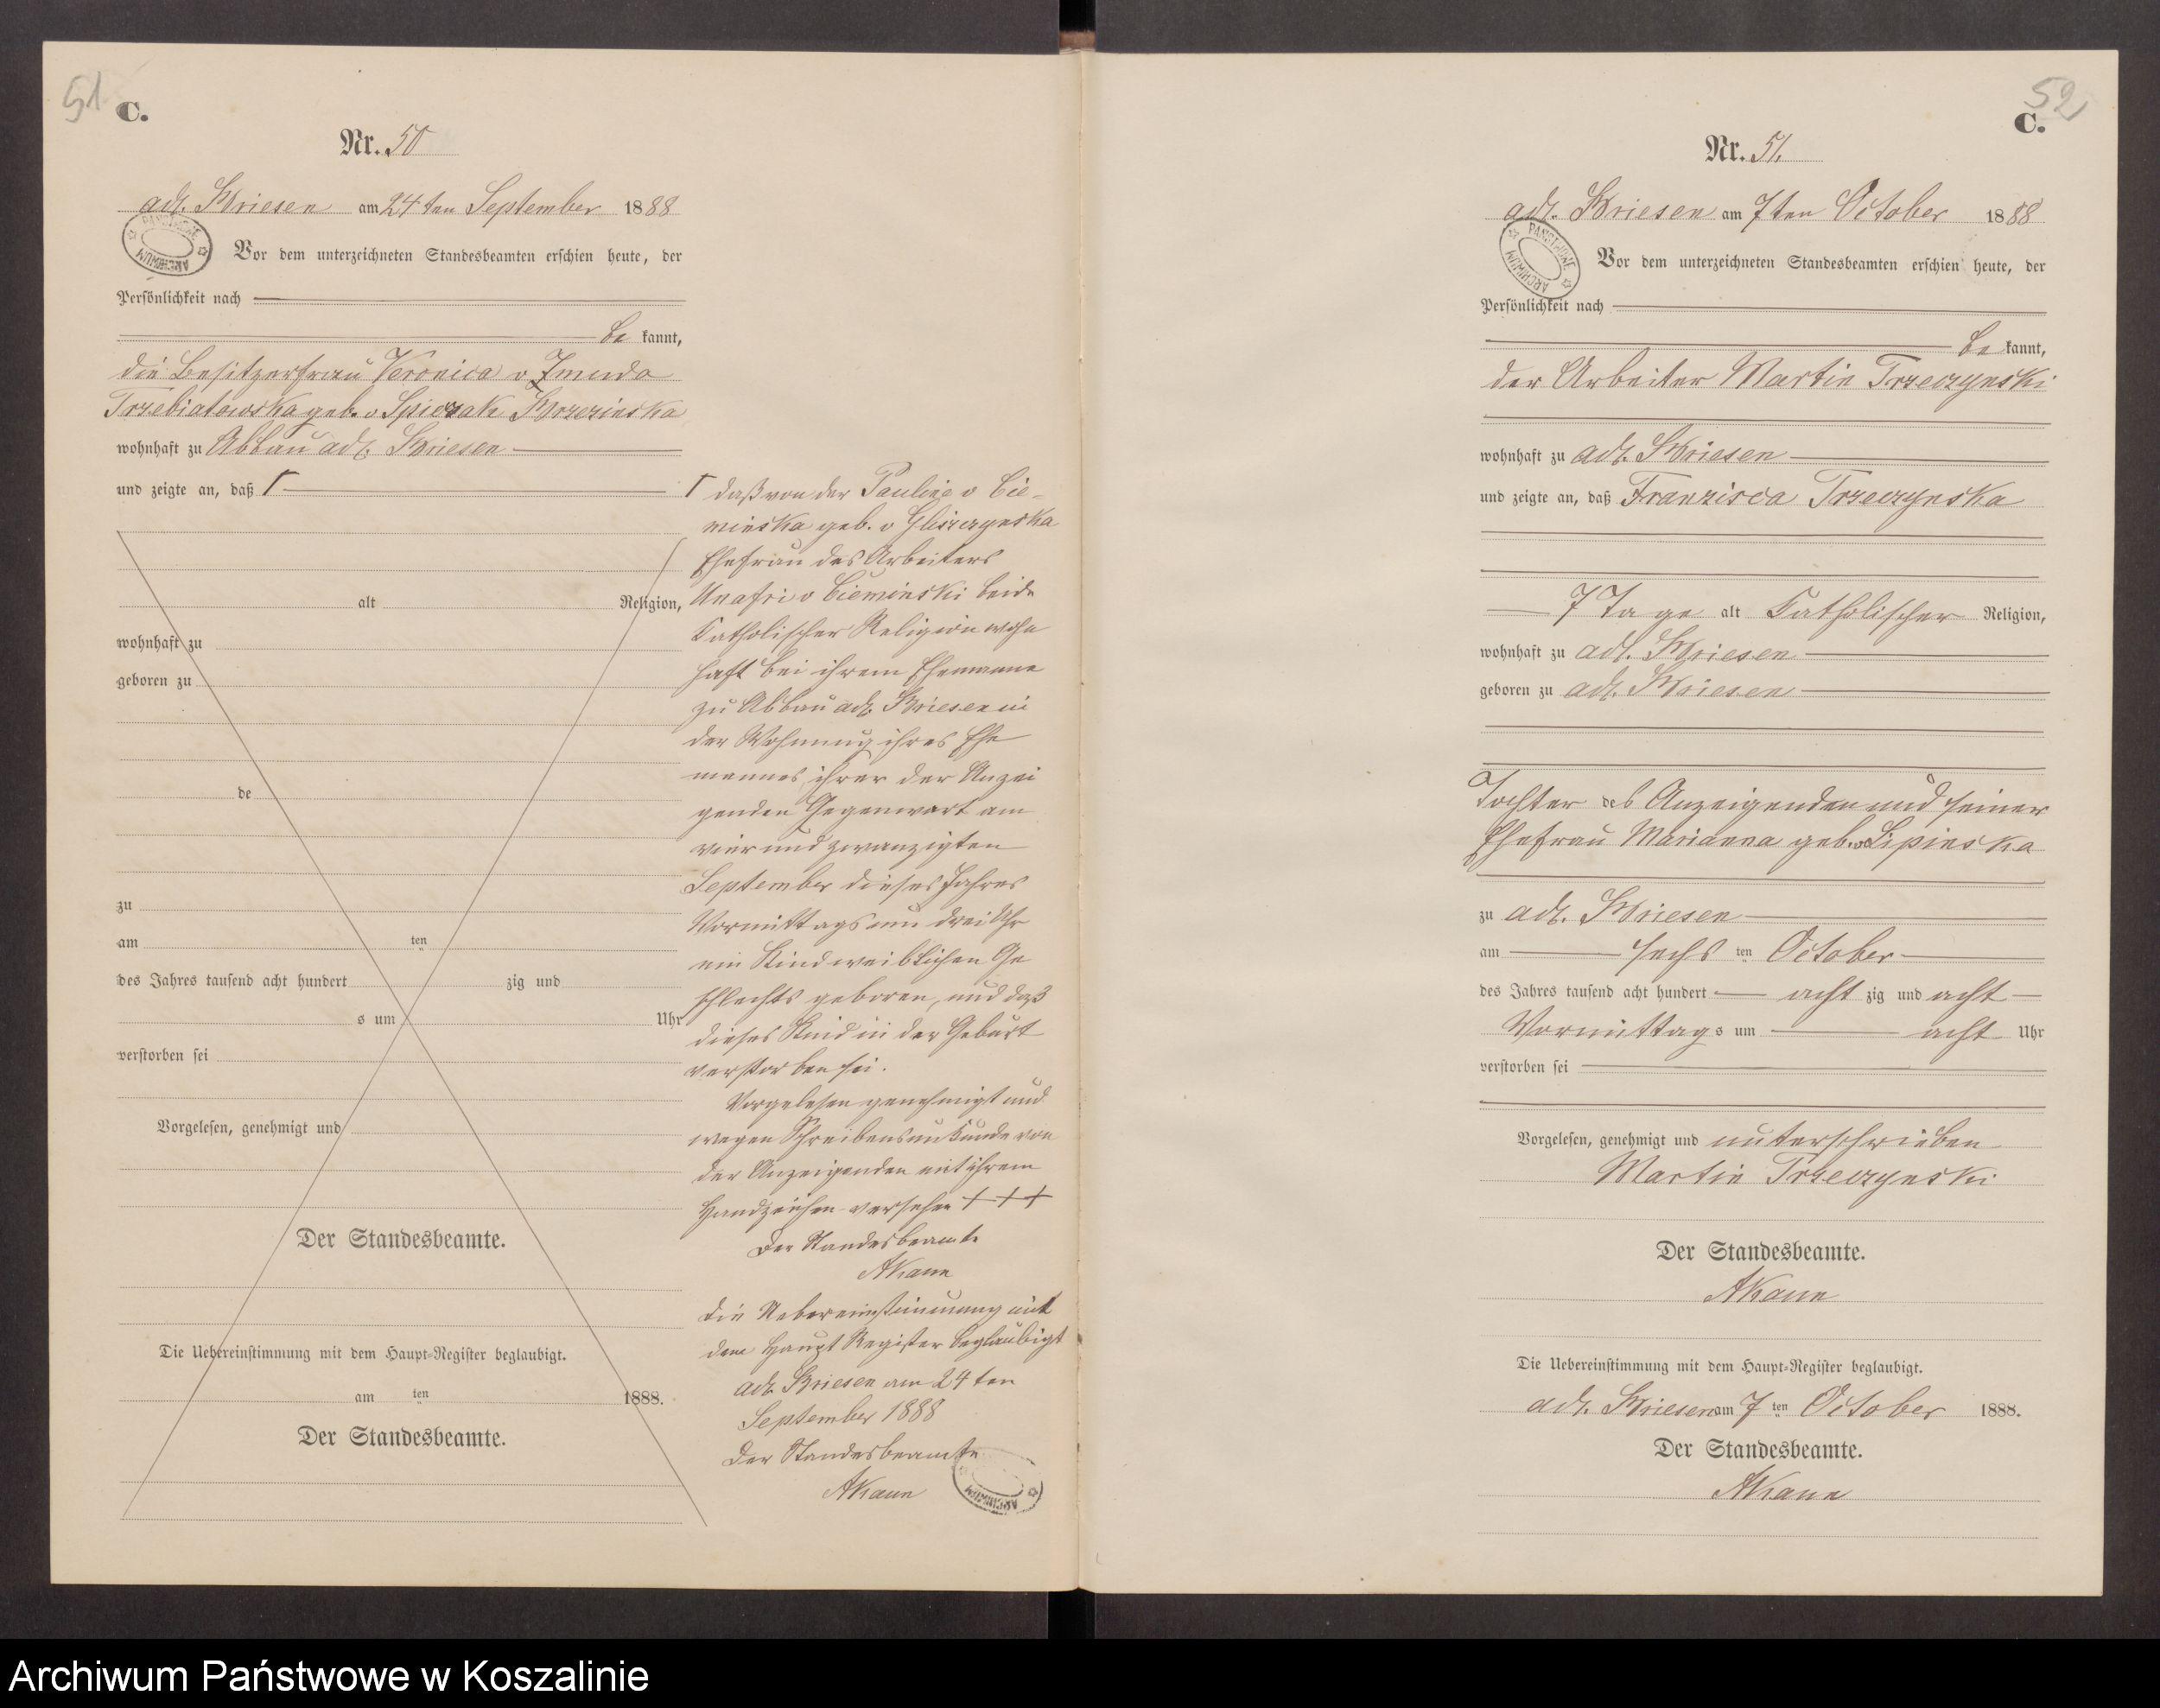 51
C.
Nr. 50
adl. Briesen am 24ten September 1888
PAŃSTWOWE ARCHIWUM
Vor dem unterzeichneten Standesbeamten erschien heute, der
Persönlichkeit nach
be kannt,
die Besitzerfrau Veronica v Zmuda
Trzebiatowska geb. v Spiczak Brzezinska
wohnhaft zu Abbau adl. Briesen
und zeigte an, daß Γ
alt Religion,
wohnhaft zu
geboren zu
de
zu
am ten
des Jahres tausend acht hundert zig und
s um Uhr
verstorben sei
Vorgelesen, genehmigt und
Der Standesbeamte.
Die Uebereinstimmung mit dem Haupt-Register beglaubigt.
am ten 1888.
Der Standesbeamte.
Γ daß von der Pauline v Cie-
minska geb. v Gliszczynska
Ehefrau des Arbeiters
Unafri v Cieminski beide
Katholischer Religion wohn
haft bei ihrem Ehemanne
zu Abbau adl. Briesen in
der Wohnung ihres Ehe
mannes, ihrer der Anzei
genden Gegenwart am
vier und zwanzigten
September dieses Jahres
Vormittags um drei Uhr
ein Kind weiblichen Ge
schlechts geboren, und daß
dieses Kind in der Geburt
verstorben sei.
Vorgelesen genehmigt und
wegen Schreibensunkunde von
der Anzeigenden mit ihrem
Handzeichen versehen + + +
Der Standesbeamte
AKann
Die Uebereinstimmung mit
dem Haupt Register beglaubigt
adl. Briesen am 24ten
September 1888
Der Standesbeamte
AKann
ARCHIWUM
52
C.
Nr. 51.
adl. Briesen am 7ten October 1888
PAŃSTWOWE ARCHIWUM
Vor dem unterzeichneten Standesbeamten erschien heute, der
Persönlichkeit nach
be kannt,
der Arbeiter Martin Trzeczynski
wohnhaft zu adl. Briesen
und zeigte an, daß Franzisca Trzeczynska
7 Tage alt Katholischer Religion,
wohnhaft zu adl. Briesen
geboren zu adl. Briesen
Tochter des Anzeigenden und seiner
Ehefrau Marianna geb. v Lipinska
zu adl. Briesen
am sechs ten October
des Jahres tausend acht hundert acht zig und acht
Vormittag s um acht Uhr
verstorben sei
Vorgelesen, genehmigt und unterschrieben
Martin Trzeczynski
Der Standesbeamte.
AKann
Die Uebereinstimmung mit dem Haupt-Register beglaubigt.
adl. Briesen am 7 ten October 1888.
Der Standesbeamte.
AKann
Archiwum Państwowe w Koszalinie